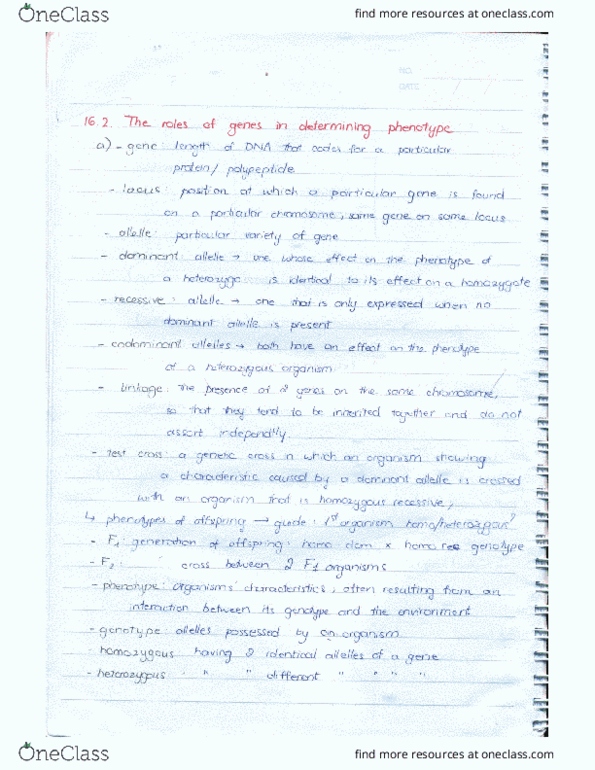 OneClass
find more resources at oneclass.com
NO.
DATE
16.2. The roles of genes in determining phenotype
a) - gene: length of DNA that codes for a particular
protein / polypeptide
- locus: position at which a particular gene is found
on a particular chromosome, same gene on same locus
- allele: particular variety of gene
- dominant allele → one whose effect on the phenotype of
a heterozygo is identical to its effect on a homozygote
- recessive: allelle → one that is only expressed when no
dominant allelle is present
- codominant allelles → both have an effect on the phenotype
of a heterozygous organism
- linkage: the presence of 2 genes on the same chromosome,
so that they tend to be inherited together and do not
assort independly.
- test cross: a genetic cross in which an organism showing
a characteristic caused by a dominant allelle is crossed
with an organism that is homozygous recessive;
↳ phenotypes of offspring → guide: 1st organism homo/heterozygous?
- F1: generation of offspring: homo dom x homo rec genotype
- F2: cross between 2 F1 organisms
- phenotype: organisms' characteristics, often resulting from an
interaction between its genotype and the environment
- genotype: allelles possessed by an organism
- homozygous: having 2 identical allelles of a gene
- heterozygous: " " different " " " "
OneClass
find more resources at oneclass.com